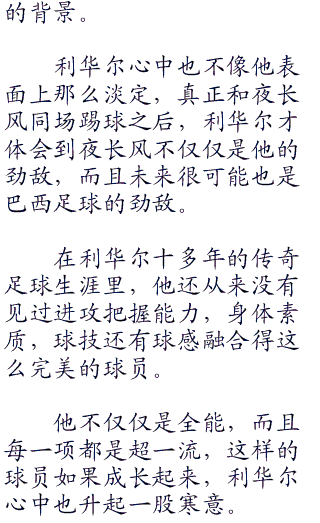 的背景。
利华尔心中也不像他表
面上那么淡定，真正和夜长
风同场踢球之后，利华尔才
体会到夜长风不仅仅是他的
劲敌，而且未来很可能也是
巴西足球的劲敌。
在利华尔十多年的传奇
足球生涯里，他还从来没有
见过进攻把握能力，身体素
质，球技还有球感融合得这
么完美的球员。
他不仅仅是全能，而且
每一项都是超一流，这样的
球员如果成长起来，利华尔
心中也升起一股寒意。